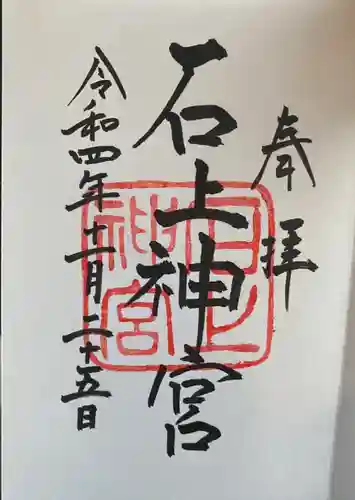 奉拝
石上神宮
令和四年十一月二十五日
石上
神宮